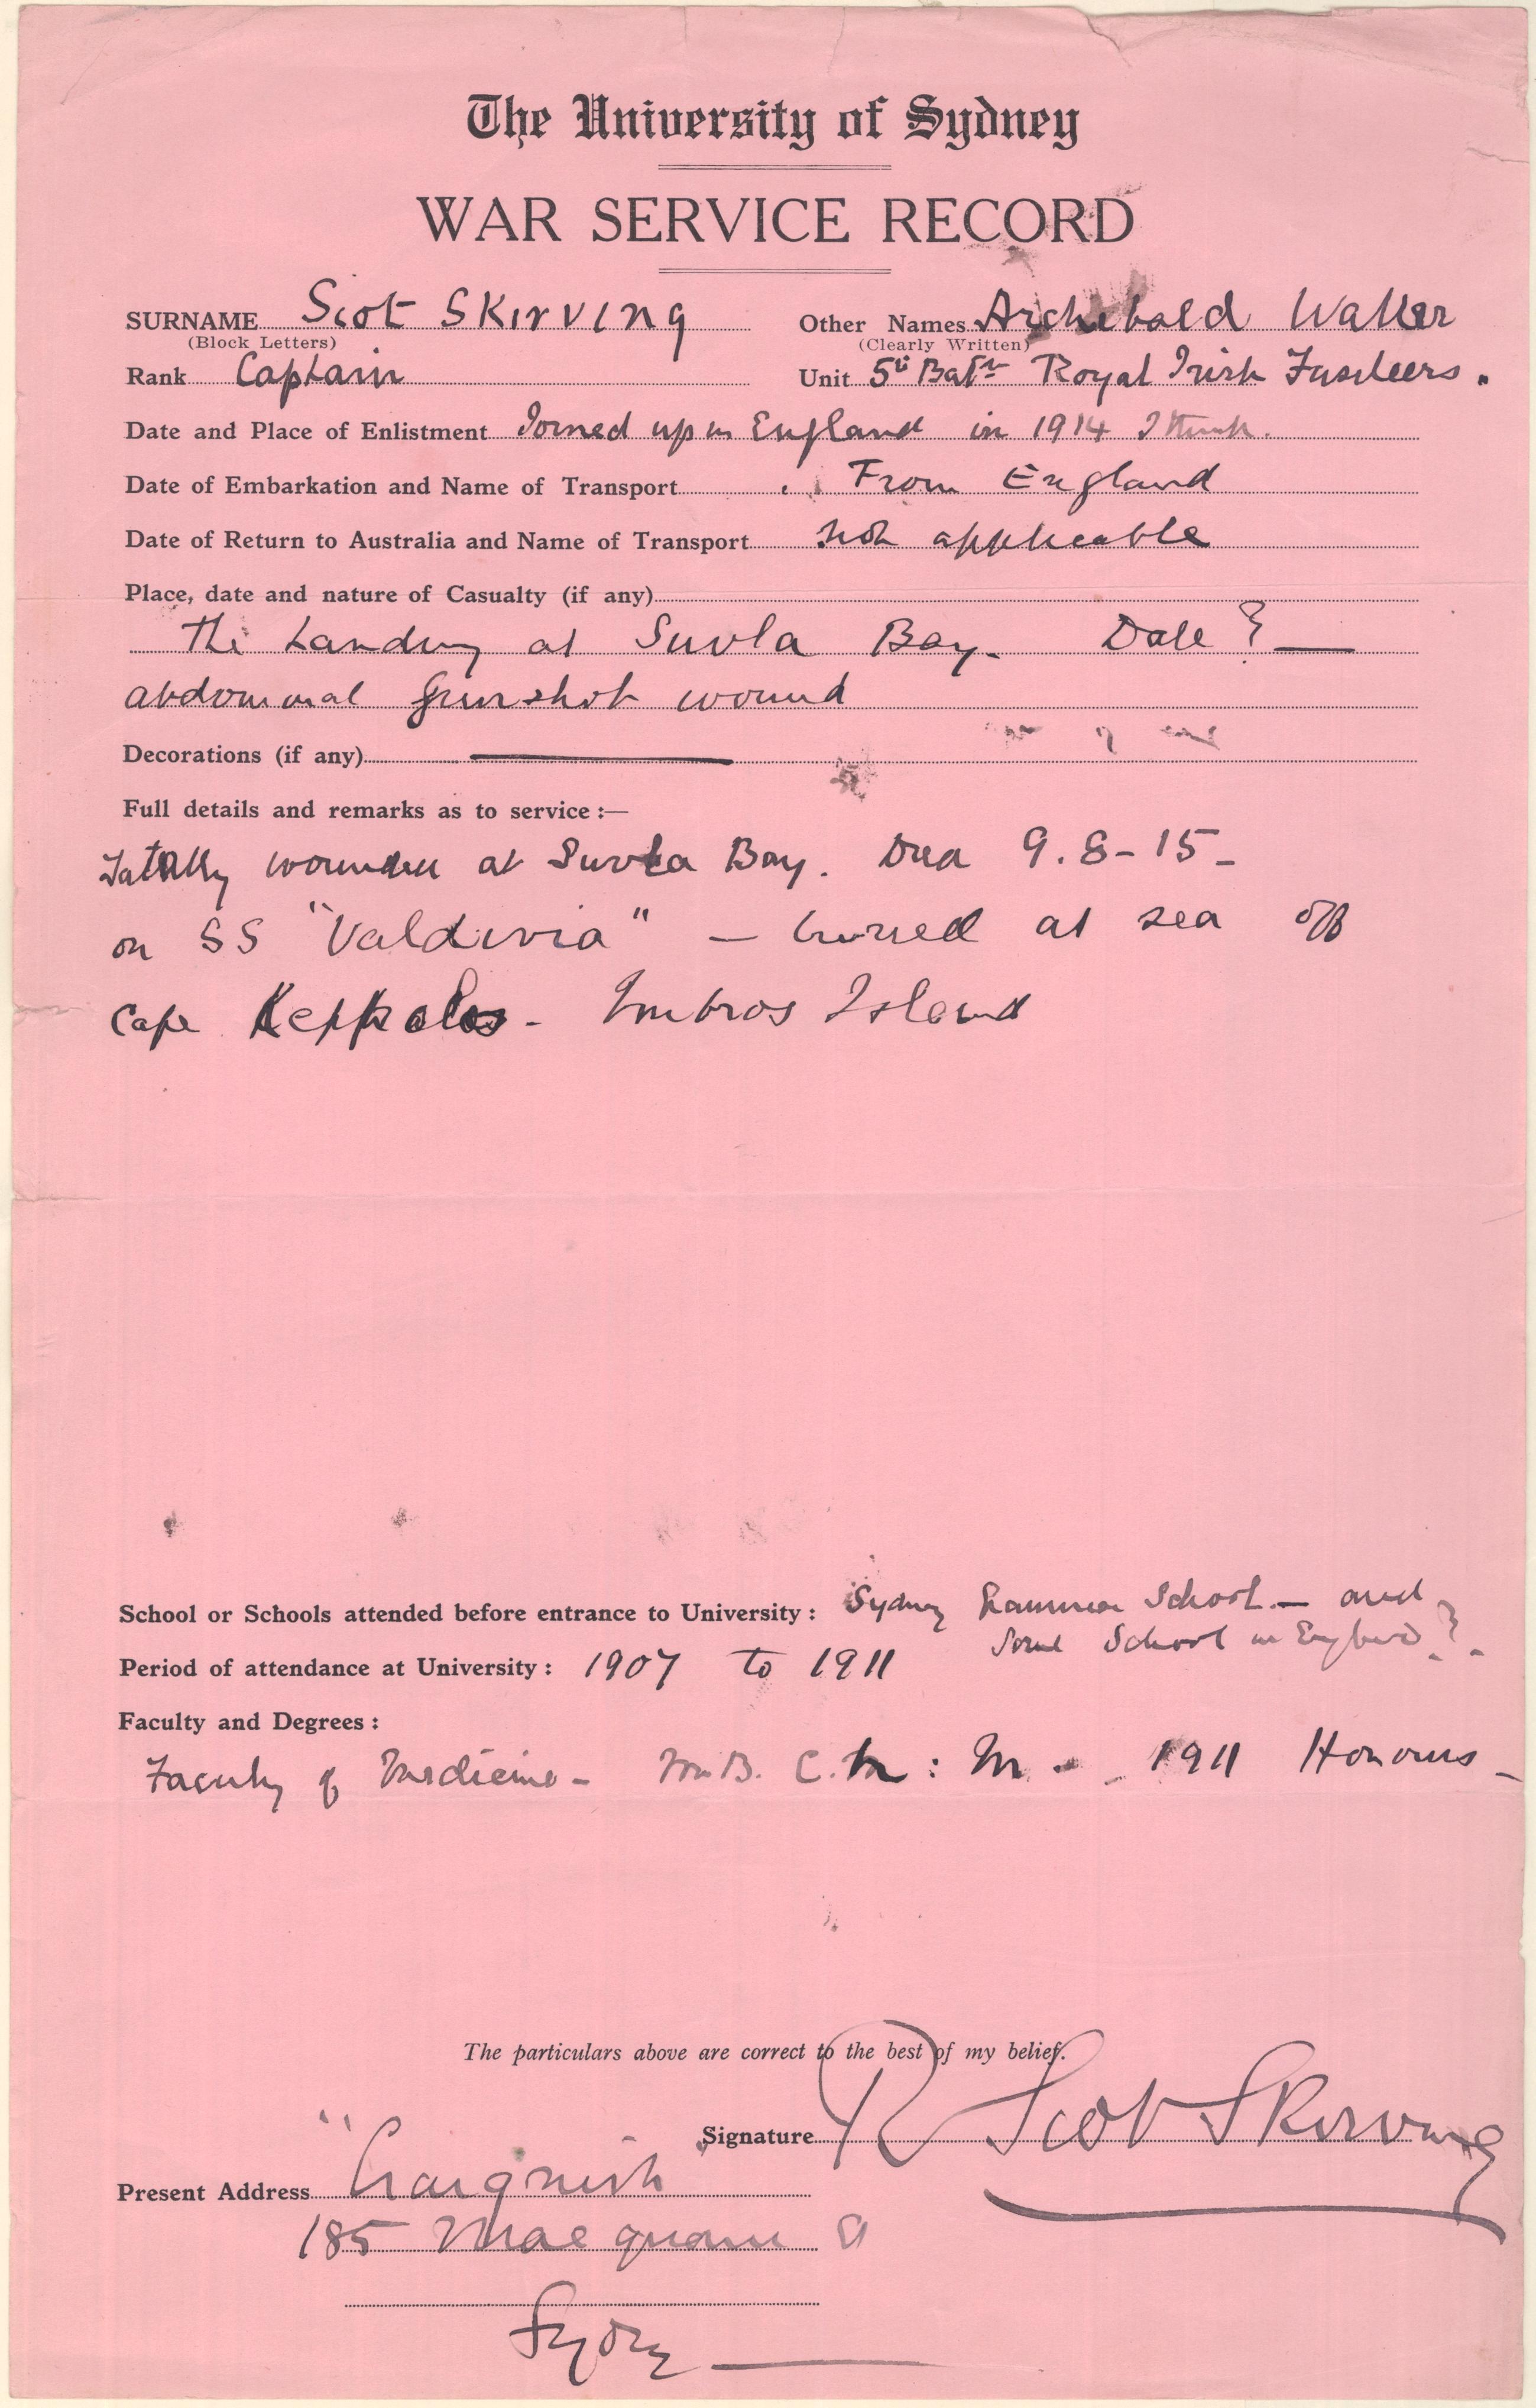 The University of Sydney
WAR SERVICE RECORD
SURNAME Scot SKIRVING Other Names Archibald Walter
(Block Letters) (Clearly Written)
Rank Captain Unit 5th Batn Royal Irish Fusileers.
Date and Place of Enlistment Joined up in England in 1914 I think.
Date of Embarkation and Name of Transport From England
Date of Return to Australia and Name of Transport not applicable
Place, date and nature of Casualty (if any)
The Landing at Suvla Bay. Date ? —
abdominal gunshot wound
Decorations (if any) —
Full details and remarks as to service :—
Fatally wounded at Suvla Bay. Died 9.8-15-
on SS "Valdivia" — buried at sea off
Cape Keppalos - Imbros Island
School or Schools attended before entrance to University : Sydney Grammar School — and
some School in England ?
Period of attendance at University : 1907 to 1911
Faculty and Degrees :
Faculty of Medicine - M.B. C.M : M - 1911 Honours -
The particulars above are correct to the best of my belief.
Signature R Scot Skirving
Present Address "Craignish"
185 Macquarie St
Sydney —